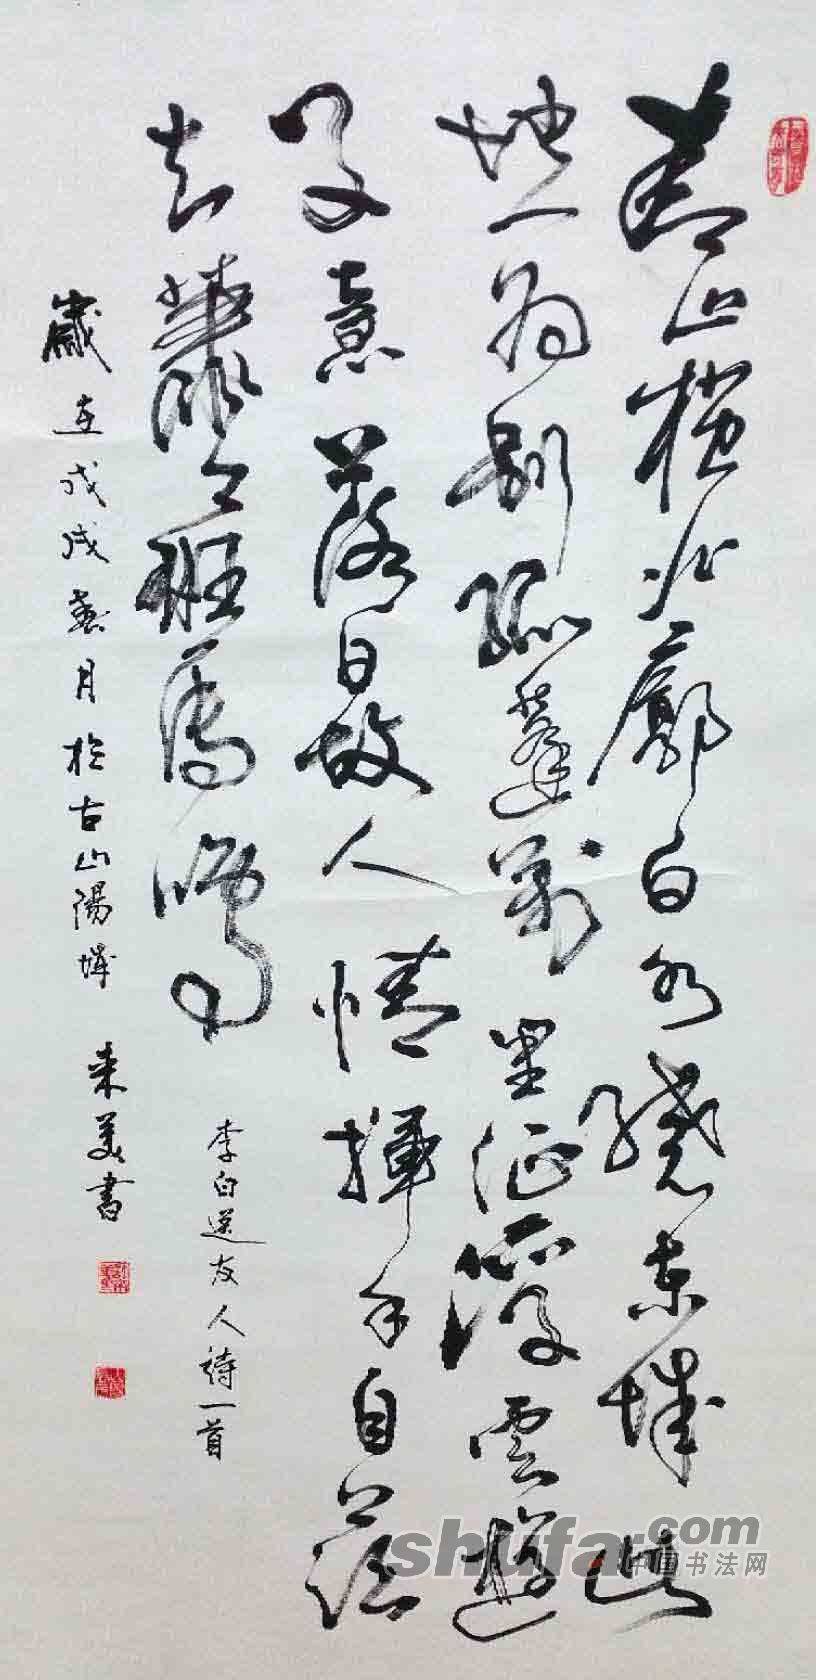 青山横北廓白水繞東城此
地一為别孤蓬萬里征浮雲遊
子意落日故人情揮手自茲
去蕭々班馬鳴
李白送友人詩一首
歲在戊戌春月於古山陽城 来美書
shufa.com
中国书法网